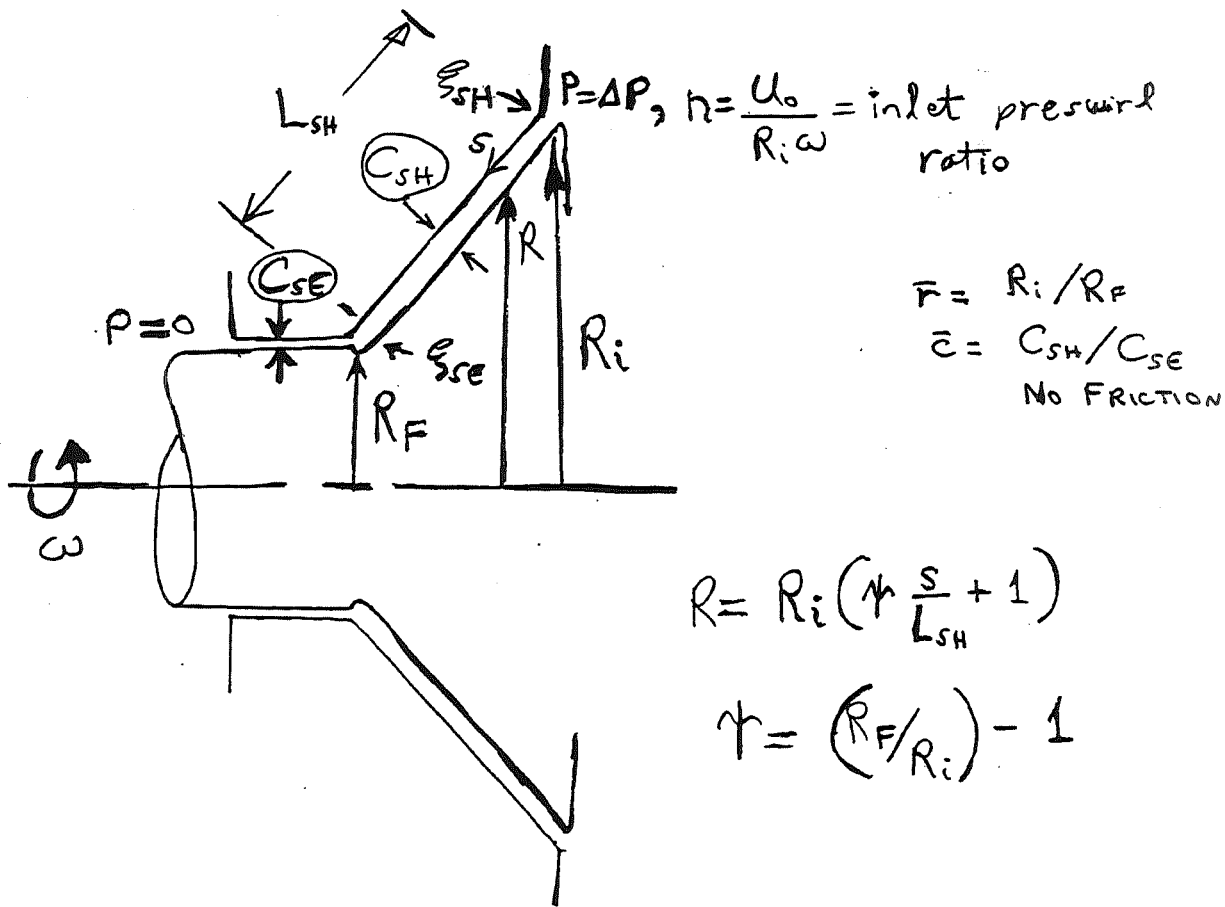 L_SH
ξ_SH P=ΔP, n = U_o / R_i ω = inlet preswirl ratio
s
C_SH
R
C_SE
P=0
ξ_SE
R_i
R_F
r̄ = R_i/R_F
c̄ = C_SH/C_SE
NO FRICTION
ω
R = R_i (ψ s/L_SH + 1)
ψ = (R_F/R_i) - 1